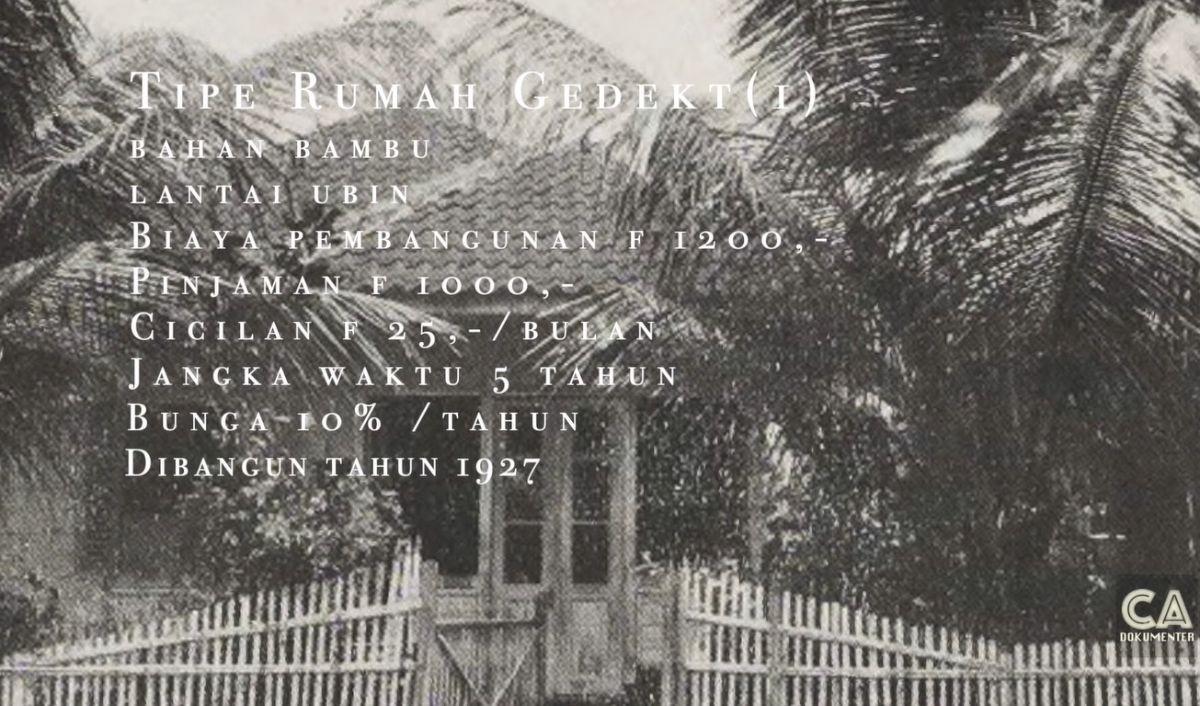 Tipe Rumah Gedekt(1)
bahan bambu
lantai ubin
Biaya pembangunan f 1200,-
Pinjaman f 1000,-
Cicilan f 25,-/bulan
Jangka waktu 5 tahun
Bunga 10% /tahun
Dibangun tahun 1927
CA
DOKUMENTER